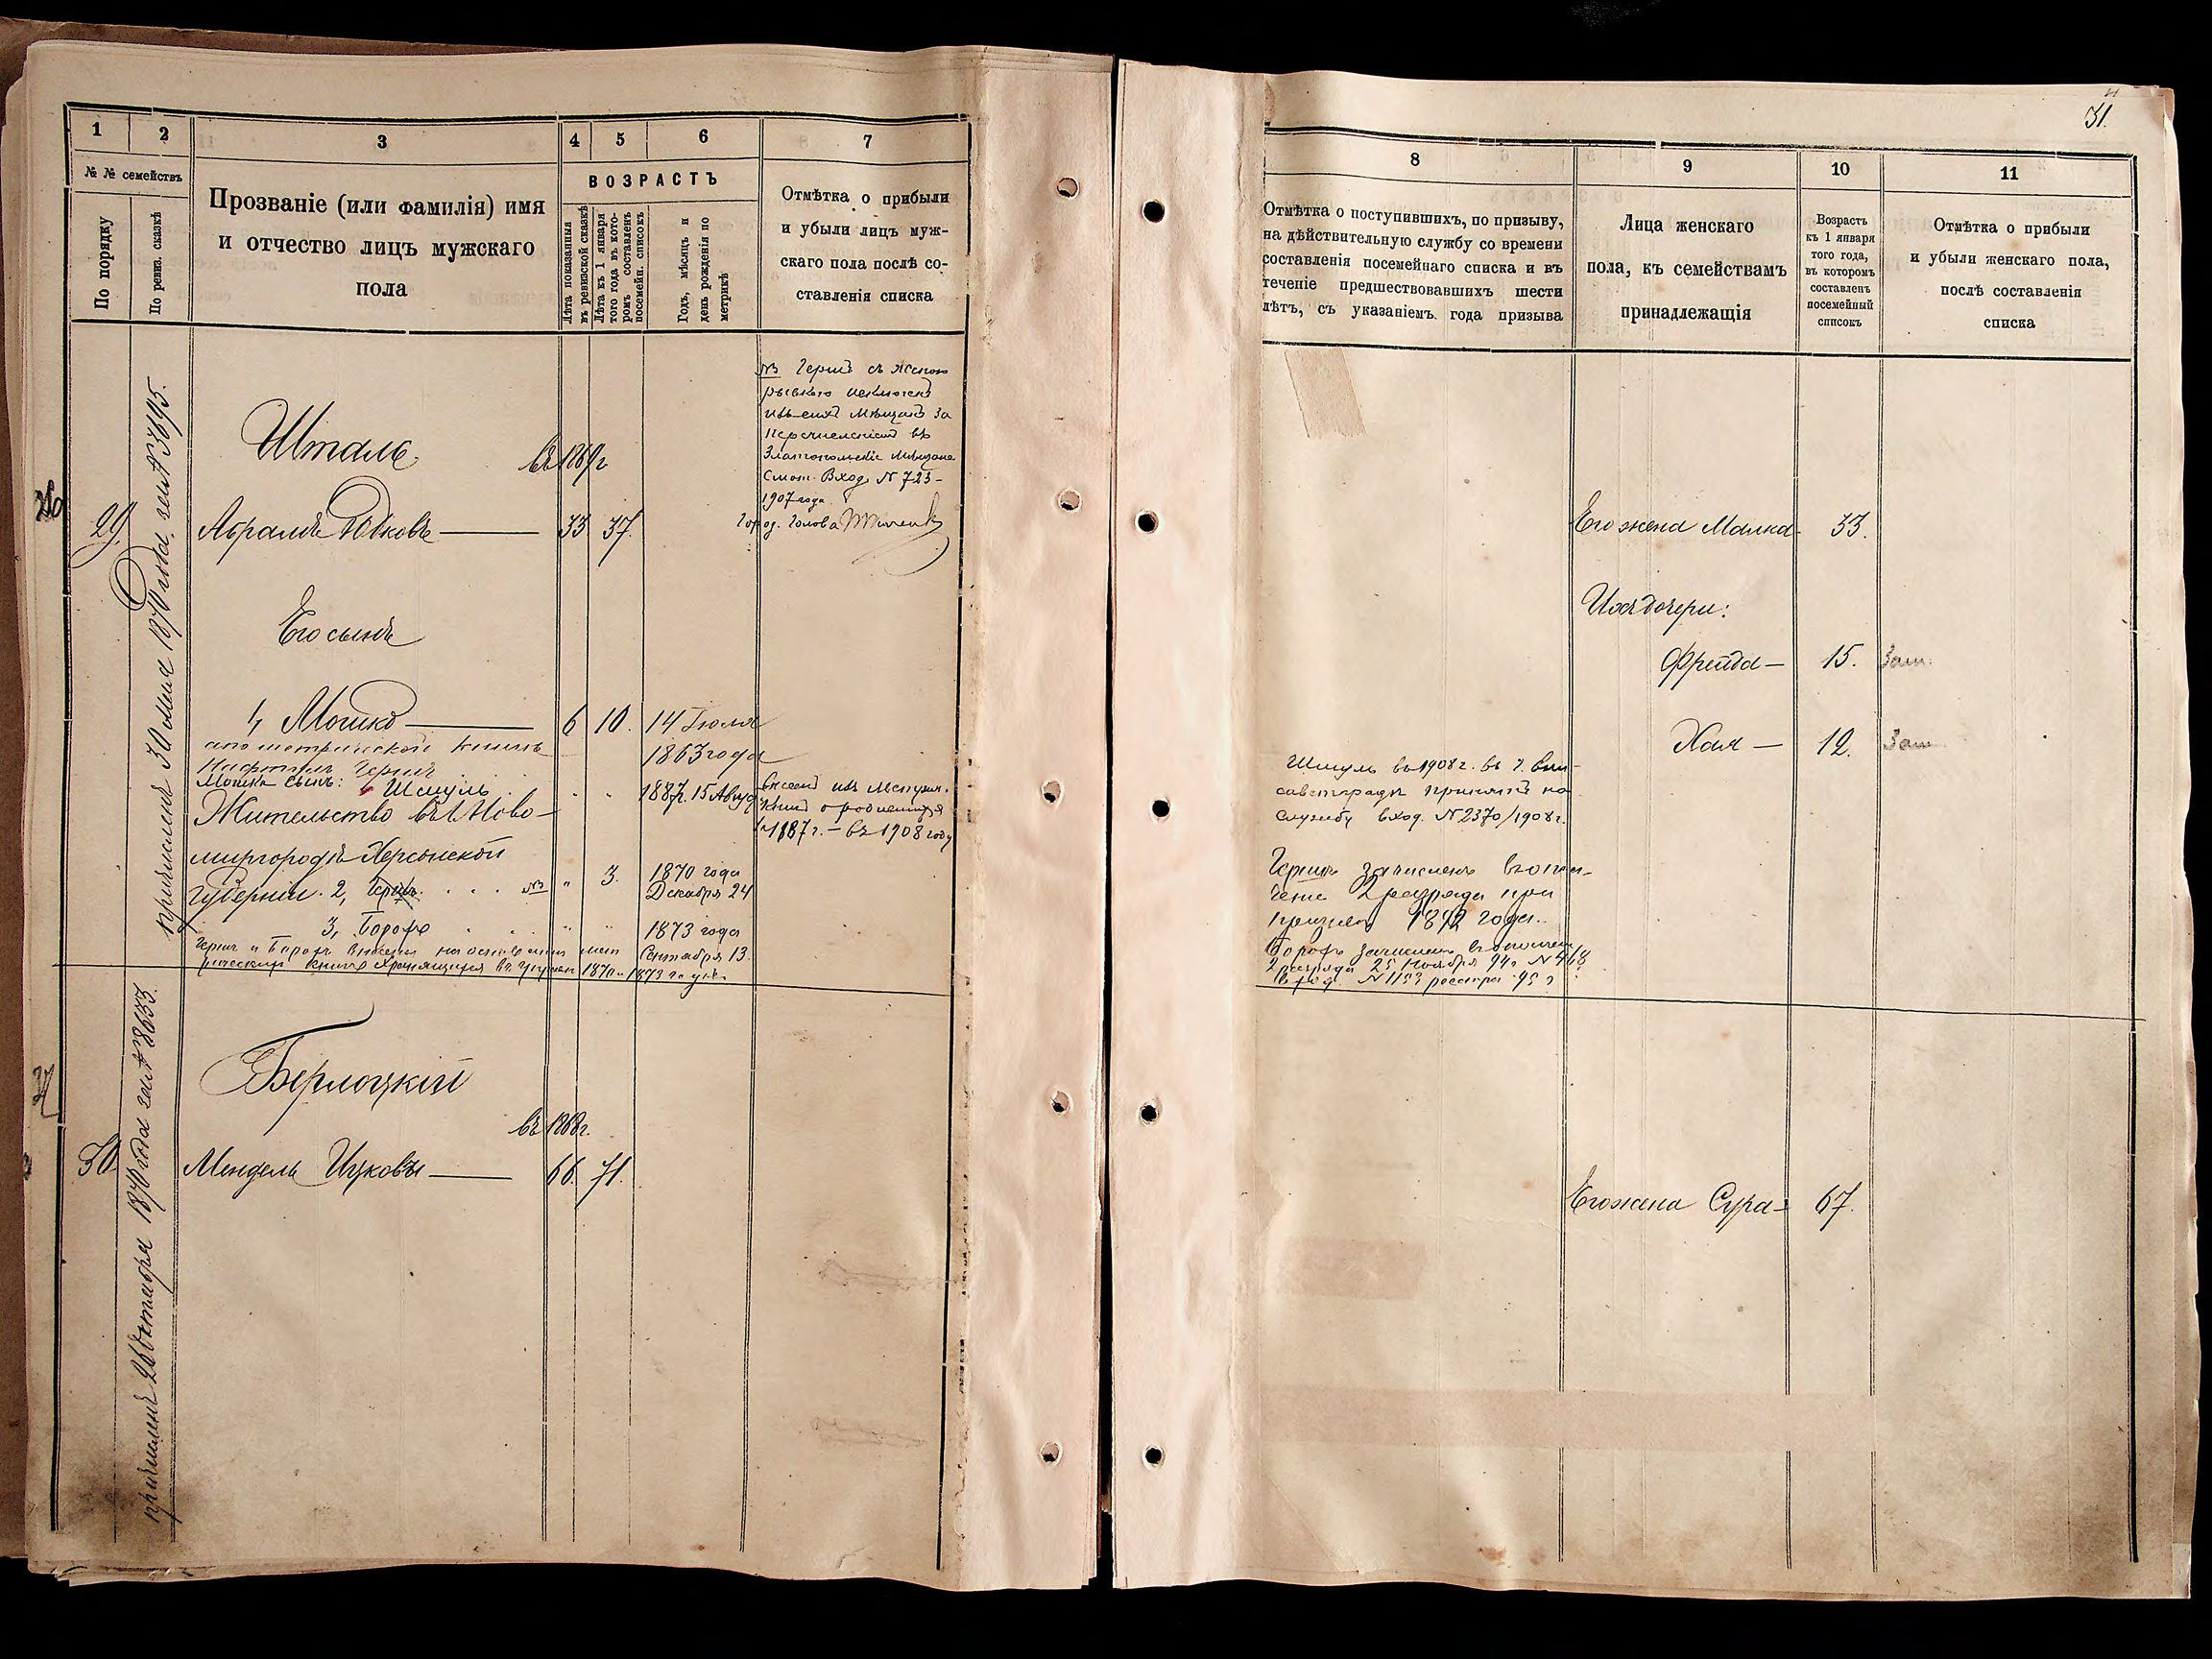 31.
1
2
3
4
5
6
7
№ № семействъ
По порядку
По ревиз. сказкѣ
Прозваніе (или фамилія) имя
и отчество лицъ мужскаго
пола
ВОЗРАСТЪ
Лѣта показанныя
въ ревизской сказкѣ
Лѣта къ 1 января
того года въ кото-
ромъ составленъ
посемейн. списокъ
Годъ, мѣсяцъ и
день рожденія по
метрикѣ
Отмѣтка о прибыли
и убыли лицъ муж-
скаго пола послѣ со-
ставленія списка
причисленъ 30 1870 года № 13695.
Шталь.
въ 1869 г
29.
Абрамъ Юдковъ
33
37.
№3 Гершъ съ женою
исключенъ
мѣщанъ за
перечисленіемъ въ
Златопольскіе мѣщане
Смот. Вход. № 723-
1907 года.
Гор од. Голова
Его сынъ
1, Мошко
6
10.
14 Іюля
1863 года
а по метрической книгѣ
Нафтуль Герш
Мошка сынъ: Шмуль
1887 г. 15 Авгус
внесенъ изъ метрич.
книг о родившихся
1887 г. - въ 1908 году
Жительство въ Ново-
миргородѣ Херсонской
губерніи. 2, Гершъ. №3
"
3.
1870 года
Декабря 24
3, Борохъ
"
"
1873 года
Сентября 13
Герш и Борохъ внесены на основаніи мет
рической книги хранящихся въ 1870 и 1873 году.
причисленъ 28 Октября 1870 года № 8633.
Берлоцкій
въ 1868 г.
30
Мендель Ицковъ
66.
71.
8
9
10
11
Отмѣтка о поступившихъ, по призыву,
на дѣйствительную службу со времени
составленія посемейнаго списка и въ
теченіе предшествовавшихъ шести
лѣтъ, съ указаніемъ года призыва
Лица женскаго
пола, къ семействамъ
принадлежащія
Возрастъ
къ 1 января
того года,
въ которомъ
составленъ
посемейный
списокъ
Отмѣтка о прибыли
и убыли женскаго пола,
послѣ составленія
списка
Его жена Малка
33.
Ихъ дочери:
Фрейда
15.
Зам.
Хая
12.
Зам
Шмуль въ 1908 г. въ г. Ели-
саветградѣ принятъ на
службу вход. № 2370/1908 г.
Гершъ зачисленъ въ опол-
ченіе 2 разряда при
призывѣ 1892 года.
Борохъ зачисленъ въ ополчен
2 разряда 25 Ноября 94 г № 468
вход. № 1153 реестра 95 г
Его жена Сура
67.